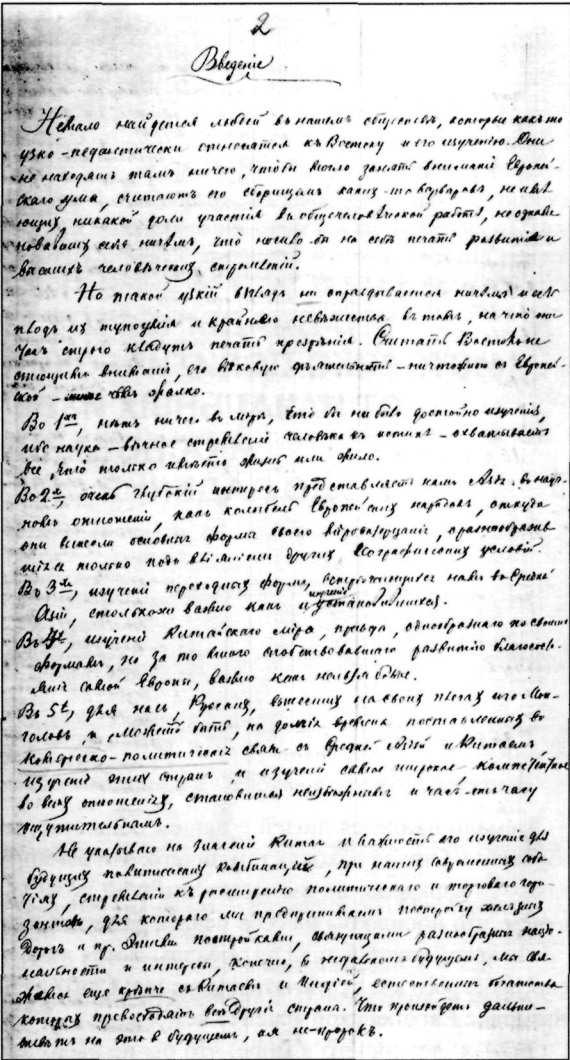 2
Введеніе
Немало найдется людей въ нашемъ обществѣ, которые какъ то
узко-педантически относятся къ Востоку и его изученію. Они
не находятъ тамъ ничего, чтобы могло занять вниманіе Европей-
скаго ума, считаютъ его сборищемъ какихъ-то варваровъ, не имѣ
ющихъ никакой доли участія въ общечеловѣческой работѣ, не
себя ничѣмъ, что носило бы на себѣ печать развитія и
высшихъ человѣческихъ стремленій.
Но такой узкій взглядъ не оправдывается ничѣмъ и есть
плодъ их тупоумія и крайняго невѣжества въ томъ, на что они
столь строго кладутъ печать презрѣнія. Считать Востокъ не
стоющимъ вниманія, его вѣковую дѣятельность - ничтожною съ Европей-
ской - жалко.
Во 1хъ, нѣтъ ничего въ мірѣ, что бы не было достойно изученія,
ибо наука - вѣчное стремленіе человѣка къ истинѣ - охватываетъ
все, что только имѣетъ жизнь или жило.
Во 2х, очень глубокій интересъ представляетъ намъ Азія въ науч-
номъ отношеніи, какъ колыбель Европейскихъ народовъ, откуда
они вынесли основныя формы своего міросозерцанія,
только подъ вліяніемъ другихъ географическихъ условій.
Въ 3хъ, изученіе переходныхъ формъ, встрѣчающихся нами въ Средней
Азіи, столько же важно какъ и изученіе установившихся.
Въ 4хъ, изученіе Китайскаго міра, правда, однообразнаго по своимъ
формамъ, но за то много способствовавшаго развитію благосостоя-
нія самой Европы, важно какъ нельзя болѣе.
Въ 5х, для насъ, Русскихъ, вынесшихъ на своихъ плечахъ иго Мон-
головъ и, можетъ быть, на долгія времена поставленныхъ во
политическія связи съ Средней Азіей и Китаемъ,
изученіе этихъ странъ, и изученіе самое широкое, компетентное
во всѣхъ отношеніяхъ, становится неизбѣжнымъ и часъ-отъ-часу
ощутительнымъ.
Не указываю на значеніе Китая и важность его изученія для
будущихъ политическихъ комбинацій, при нашихъ современныхъ собы
тіяхъ, стремленій къ расширенію политическаго и торговаго гори-
зонтовъ, для котораго мы предпринимаемъ постройку желѣзныхъ
дорогъ и пр. Этими постройками, связующими разнообразныя націо-
нальности и интересы, конечно, въ недалекомъ будущемъ, мы свя-
жемся еще крѣпче съ Китаемъ и Индіей, естественныя богатства
которыхъ превосходятъ всѣ другія страны. Что произойдетъ дальше-
отвѣтъ на это в будущемъ, а я не-пророкъ.